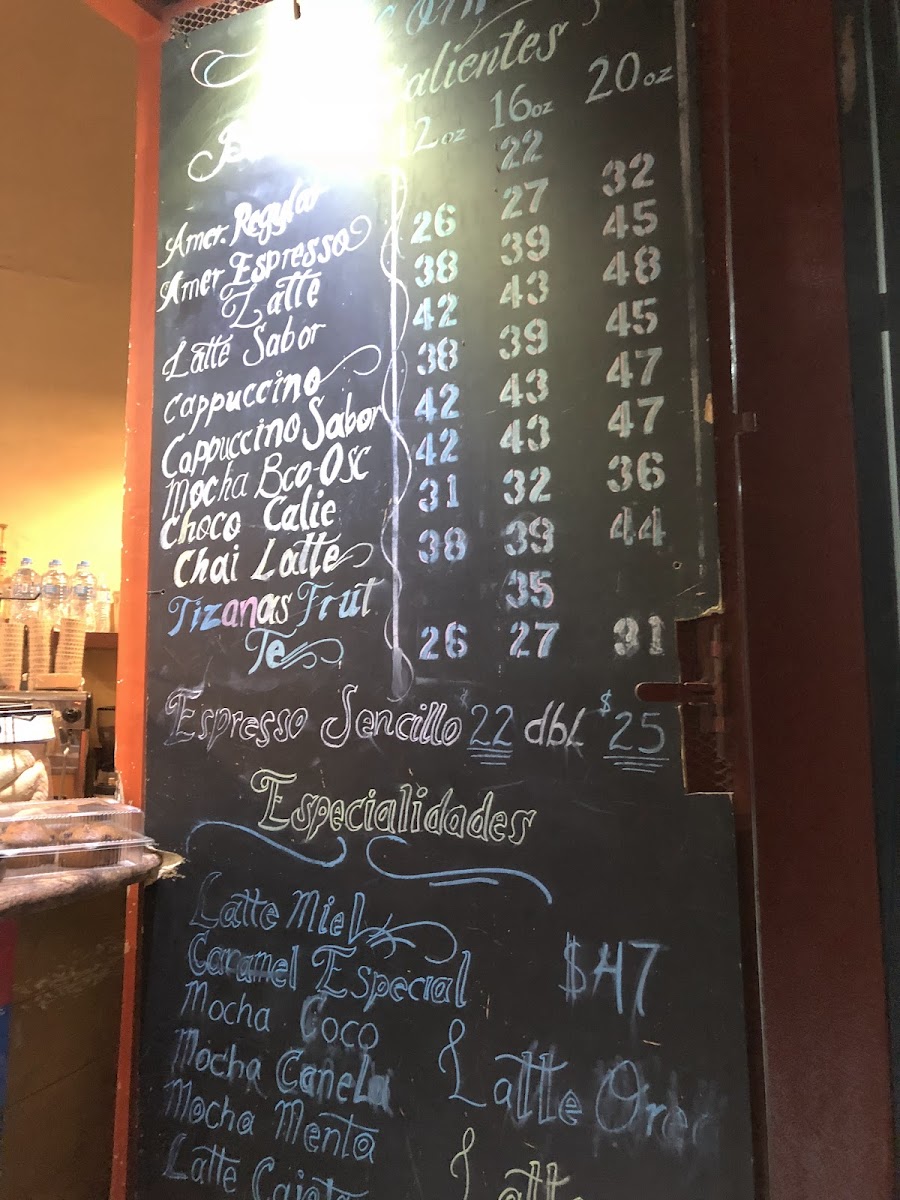 alientes
2 oz 16 oz 20 oz
Amer. Regular 22
Amer Espresso 26 27 32
Latte 38 39 45
Latte Sabor 42 43 48
Cappuccino 38 39 45
Cappuccino Sabor 42 43 47
Mocha Bco-Osc 42 43 47
Choco Calie 31 32 36
Chai Latte 38 39 44
Tizanas Frut 35
Te 26 27 31
Espresso Sencillo $22 dbl $25
Especialidades
Latte Miel
Caramel Especial $47
Mocha Coco
Mocha Canela Latte Oreo
Mocha Menta
Latte Cajeta Latte